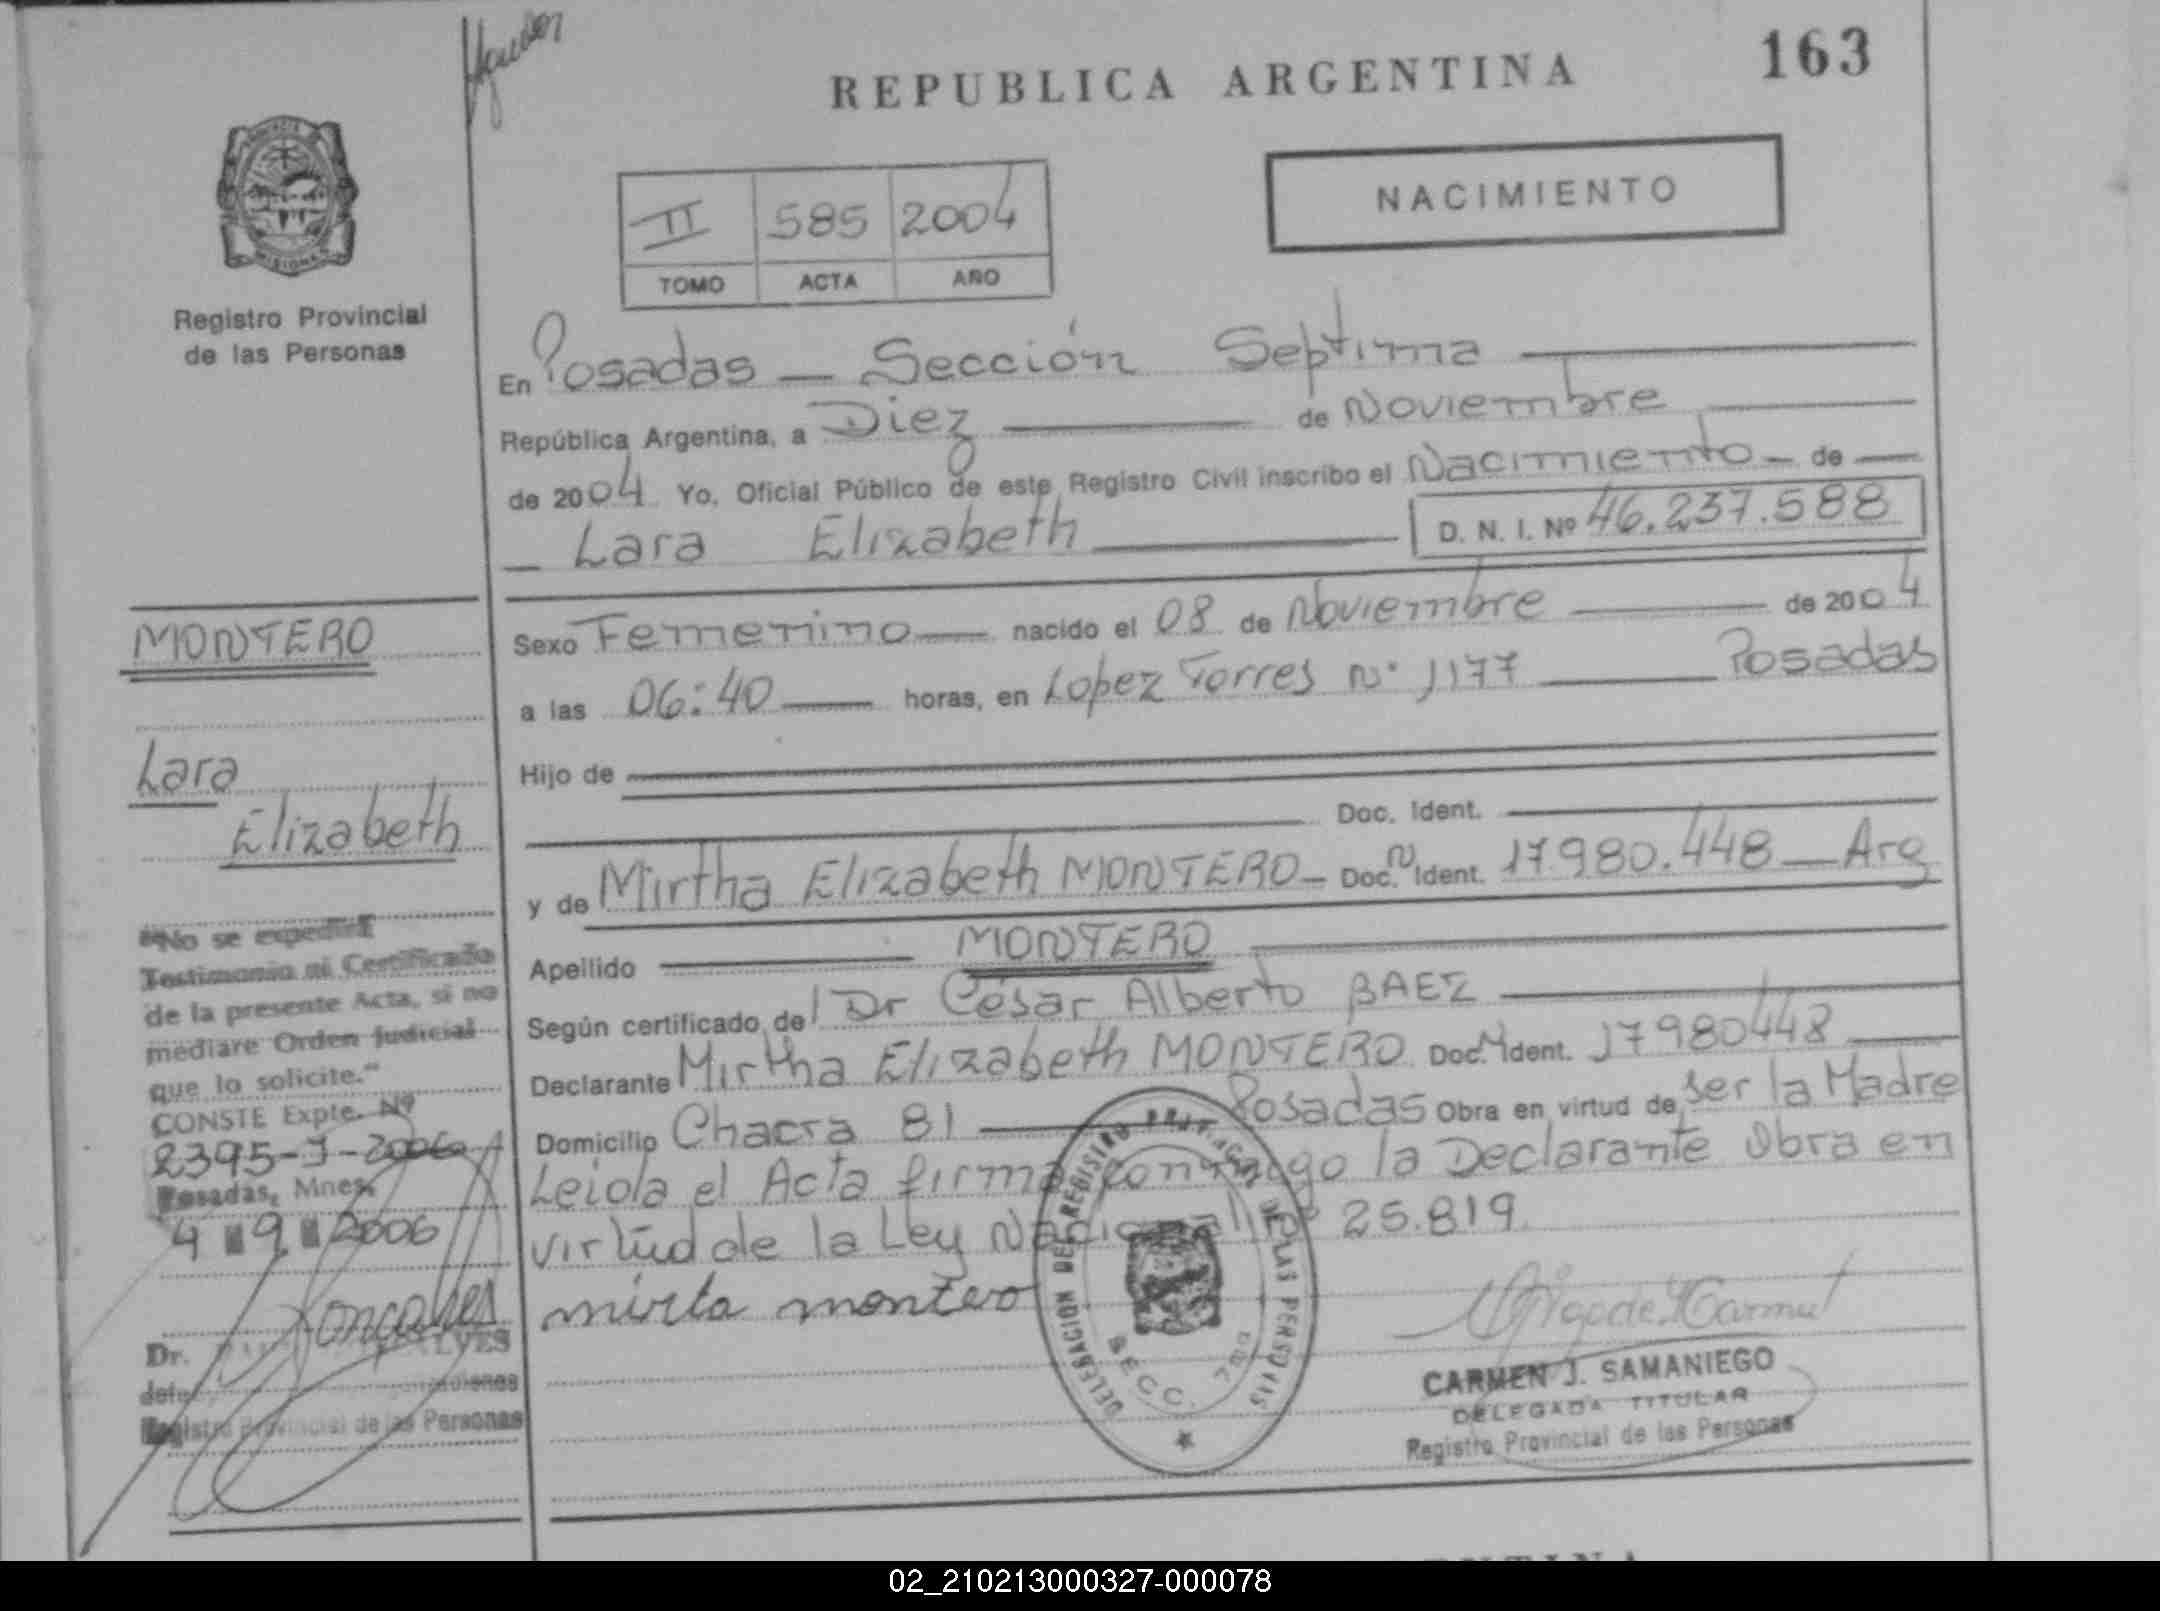 REPUBLICA ARGENTINA
163
NACIMIENTO
II 585 2004
TOMO ACTA AÑO
MISIONES
Registro Provincial
de las Personas
En Posadas — Sección Septima
República Argentina, a Diez de Noviembre
de 2004 Yo, Oficial Público de este Registro Civil inscribo el Nacimiento — de
— Lara Elizabeth
D. N. I. Nº 46.237.588
Sexo Femenino nacido el 08 de Noviembre de 2004
a las 06:40 horas, en Lopez Torres Nº 1177 Posadas
Hijo de
Doc. Ident.
y de Mirtha Elizabeth MONTERO — Doc. N Ident. 17.980.448 — Arg
Apellido MONTERO
Según certificado del Dr César Alberto BAEZ
Declarante Mirtha Elizabeth MONTERO Doc. N Ident. 17980448
Domicilio Chacra 81 Posadas Obra en virtud de ser la Madre
Leiola el Acta firma conmigo la Declarante Obra en
virtud de la Ley Nacional Nº 25.819.
mirta montero
CARMEN J. SAMANIEGO
DELEGADA TITULAR
Registro Provincial de las Personas
DELEGACION DEL REGISTRO PROVINCIAL DE LAS PERSONAS
SECC. 7ma
MONTERO
Lara
Elizabeth
"No se expedirá
Testimonio ni Certificado
de la presente Acta, si no
mediare Orden Judicial
que lo solicite."
CONSTE Expte. Nº
2395-J-2006
Posadas, Mnes.
4 9 2006
Dr.
Registro Provincial de las Personas
02_210213000327-000078